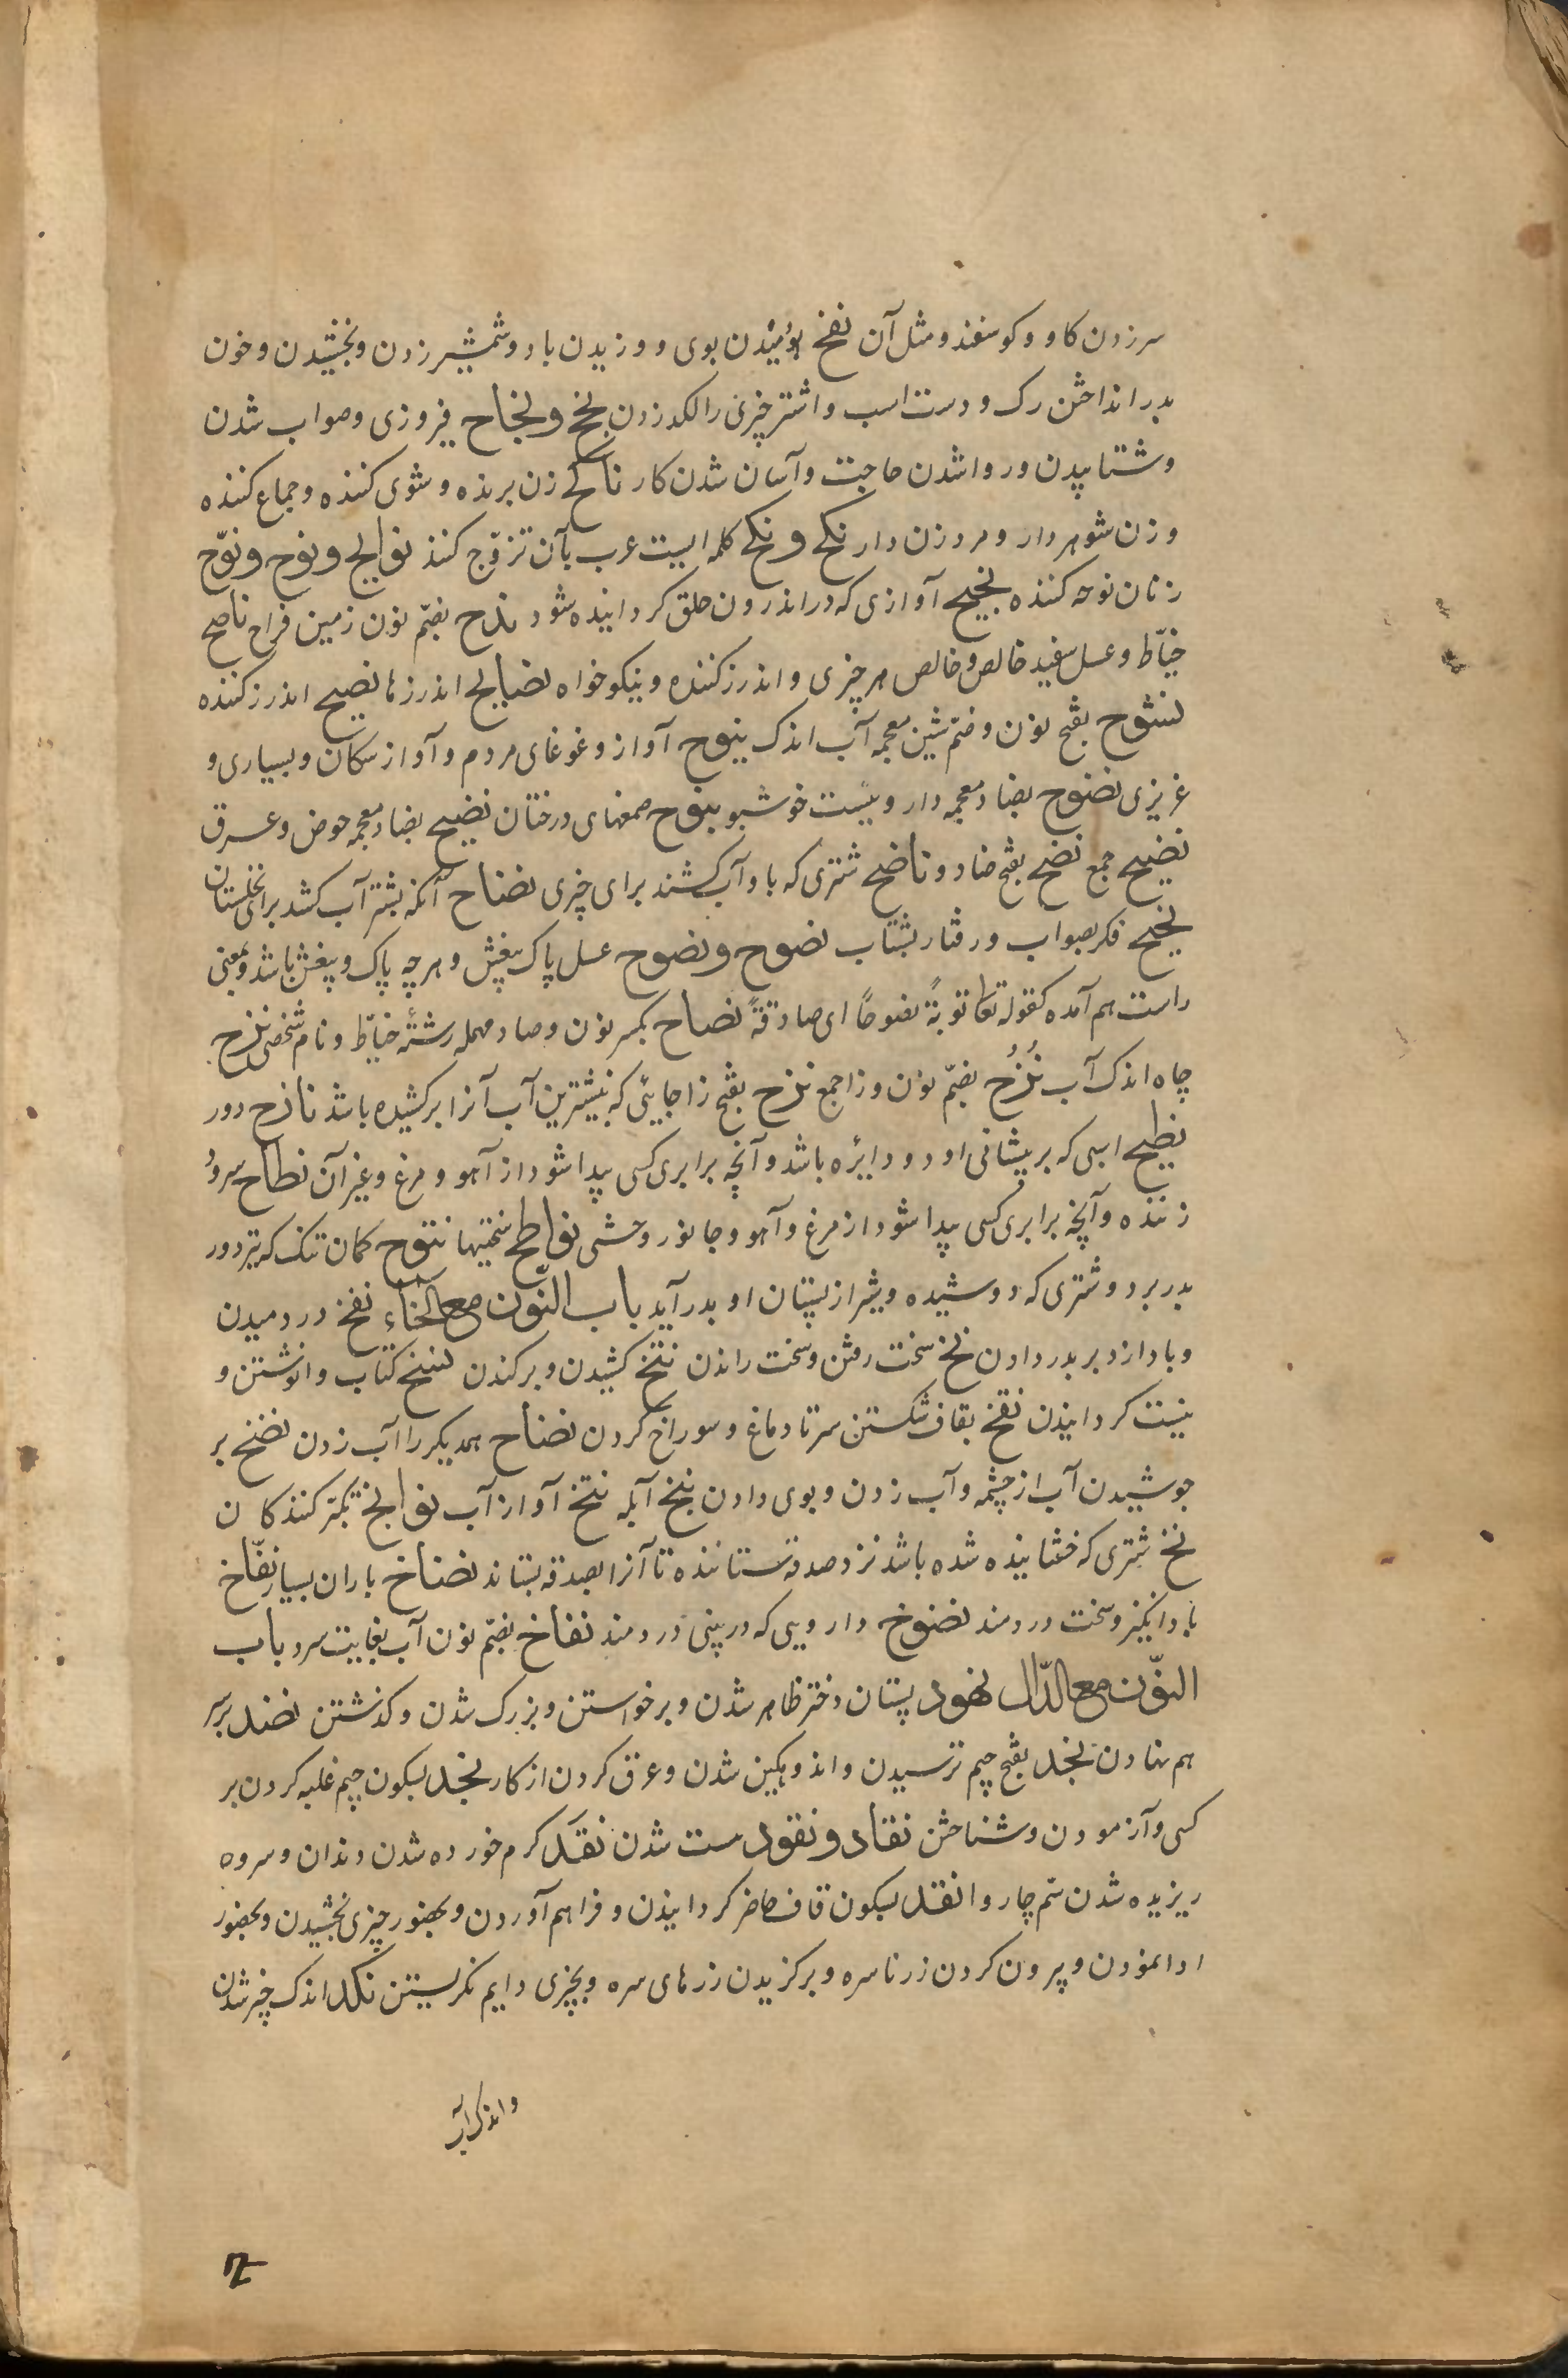 سر زدن کاو و کوسفند و مثل آن نفخ بوییدن بوی و وزیدن باد و شمشیر زدن و بخشیدن و خون
بدر انداختن رک و دست اسب و اشتر چیزی را لکد زدن نجح و نجاح فیروزی و صواب شدن
و شتابیدن و روا شدن حاجت و آسان شدن کار ناکح زن برنده و شوی کننده و جماع کننده
و زن شوهردار و مرد زن دار نکح و نکح کلمه ایست عرب بآن تزوّج کنند نوایح و نوح و نوّح
زنان نوحه کننده نحیح آوازی که در اندرون حلق کردانیده شود ندح بضمّ نون زمین فراح ناصح
خیّاط و عسل سفید خالص و خالص هر چیزی و اندرز کننده و نیکو خواه نصایح اندرزها نصیح اندرز کننده
نشوح بفتح نون و ضمّ شین معجمه آب اندک نبوح آواز و غوغای مردم و آواز سکان و بسیاری و
عزیزی نضوح بضاد معجمه دارویست خوشبو نتوح صمغهای درختان نضیح بضاد معجمه حوض و عرق
نضیح جمع نضح بفتح ضاد و ناضح شتری که باو آب کشند برای چیزی نضاح آنکه بشتر آب کشد برای نخلستان
نجیح فکر بصواب و رفتار بشتاب نصوح و نصوح عسل پاک بیغش و هر چه پاک و بیغش باشد و بمعنی
راست هم آمده کقوله تعا توبةً نصوحًا ای صادقةً نصاح بکسر نون و صاد مهمله رشتهٔ خیّاط و نام شخصی نزح
چاه اندک آب نُزُح بضمّ نون و زا جمع نزح بفتح زا جایی که بیشترین آب آنرا برکشیده باشد نازح دور
نطیح اسپی که بر پیشانی او دو دایره باشد و آنچه برابری کسی پیدا شود از آهو و مرغ و غیر آن نطاح سرو
زننده و آنچه برابری کسی پیدا شود از مرغ و آهو و جانور وحشی نواطح سختیها نتوح کمان تنک که تیر دور
بدر برد و شتری که دوشیده و شیر از پستان او بدر آید باب النّون مع الخاء نفخ در دمیدن
و باد از دبر بدر دادن نخ سخت رفتن و سخت راندن نتخ کشیدن و برکندن نسخ کتاب وانوشتن و
نیست کردانیدن نقخ بقاف شکستن سر تا دماغ و سوراخ کردن نضاخ همدیکر را آب زدن نضخ بر
جوشیدن آب از چشمه و آب زدن و بوی دادن نبخ آبله نتخ آواز آب نوابخ تکبّر کنندکان
نخ شتری که خسپانیده شده باشد نزد صدقه ستاننده تا آنرا بصدقه بستاند نضاخ باران بسیار نفّاخ
باد انکیز و سخت دردمند نضوخ دارویی که در بینی دردمند نقاخ بضمّ نون آب بغایت سرد باب
النّون مع الدّال نهود پستان دختر ظاهر شدن و برخواستن و بزرک شدن و کذشتن نضد بر سر
هم نهادن نجد بفتح جیم ترسیدن و اندوهکین شدن و عرق کردن از کار نجد بسکون جیم غلبه کردن بر
کسی و آزمودن و شناختن نقاد و نقود ست شدن نقد کرم خورده شدن دندان و سروه
ریزیده شدن سم چاروا نقد بسکون قاف حاضر کردانیدن و فراهم آوردن و بحضور چیزی بخشیدن و بحضور
ادا نمودن و بیرون کردن زر ناسره و برکزیدن زرهای سره و بچیزی دایم نکریستن نکد اندک چیز شدن
و اندک آب